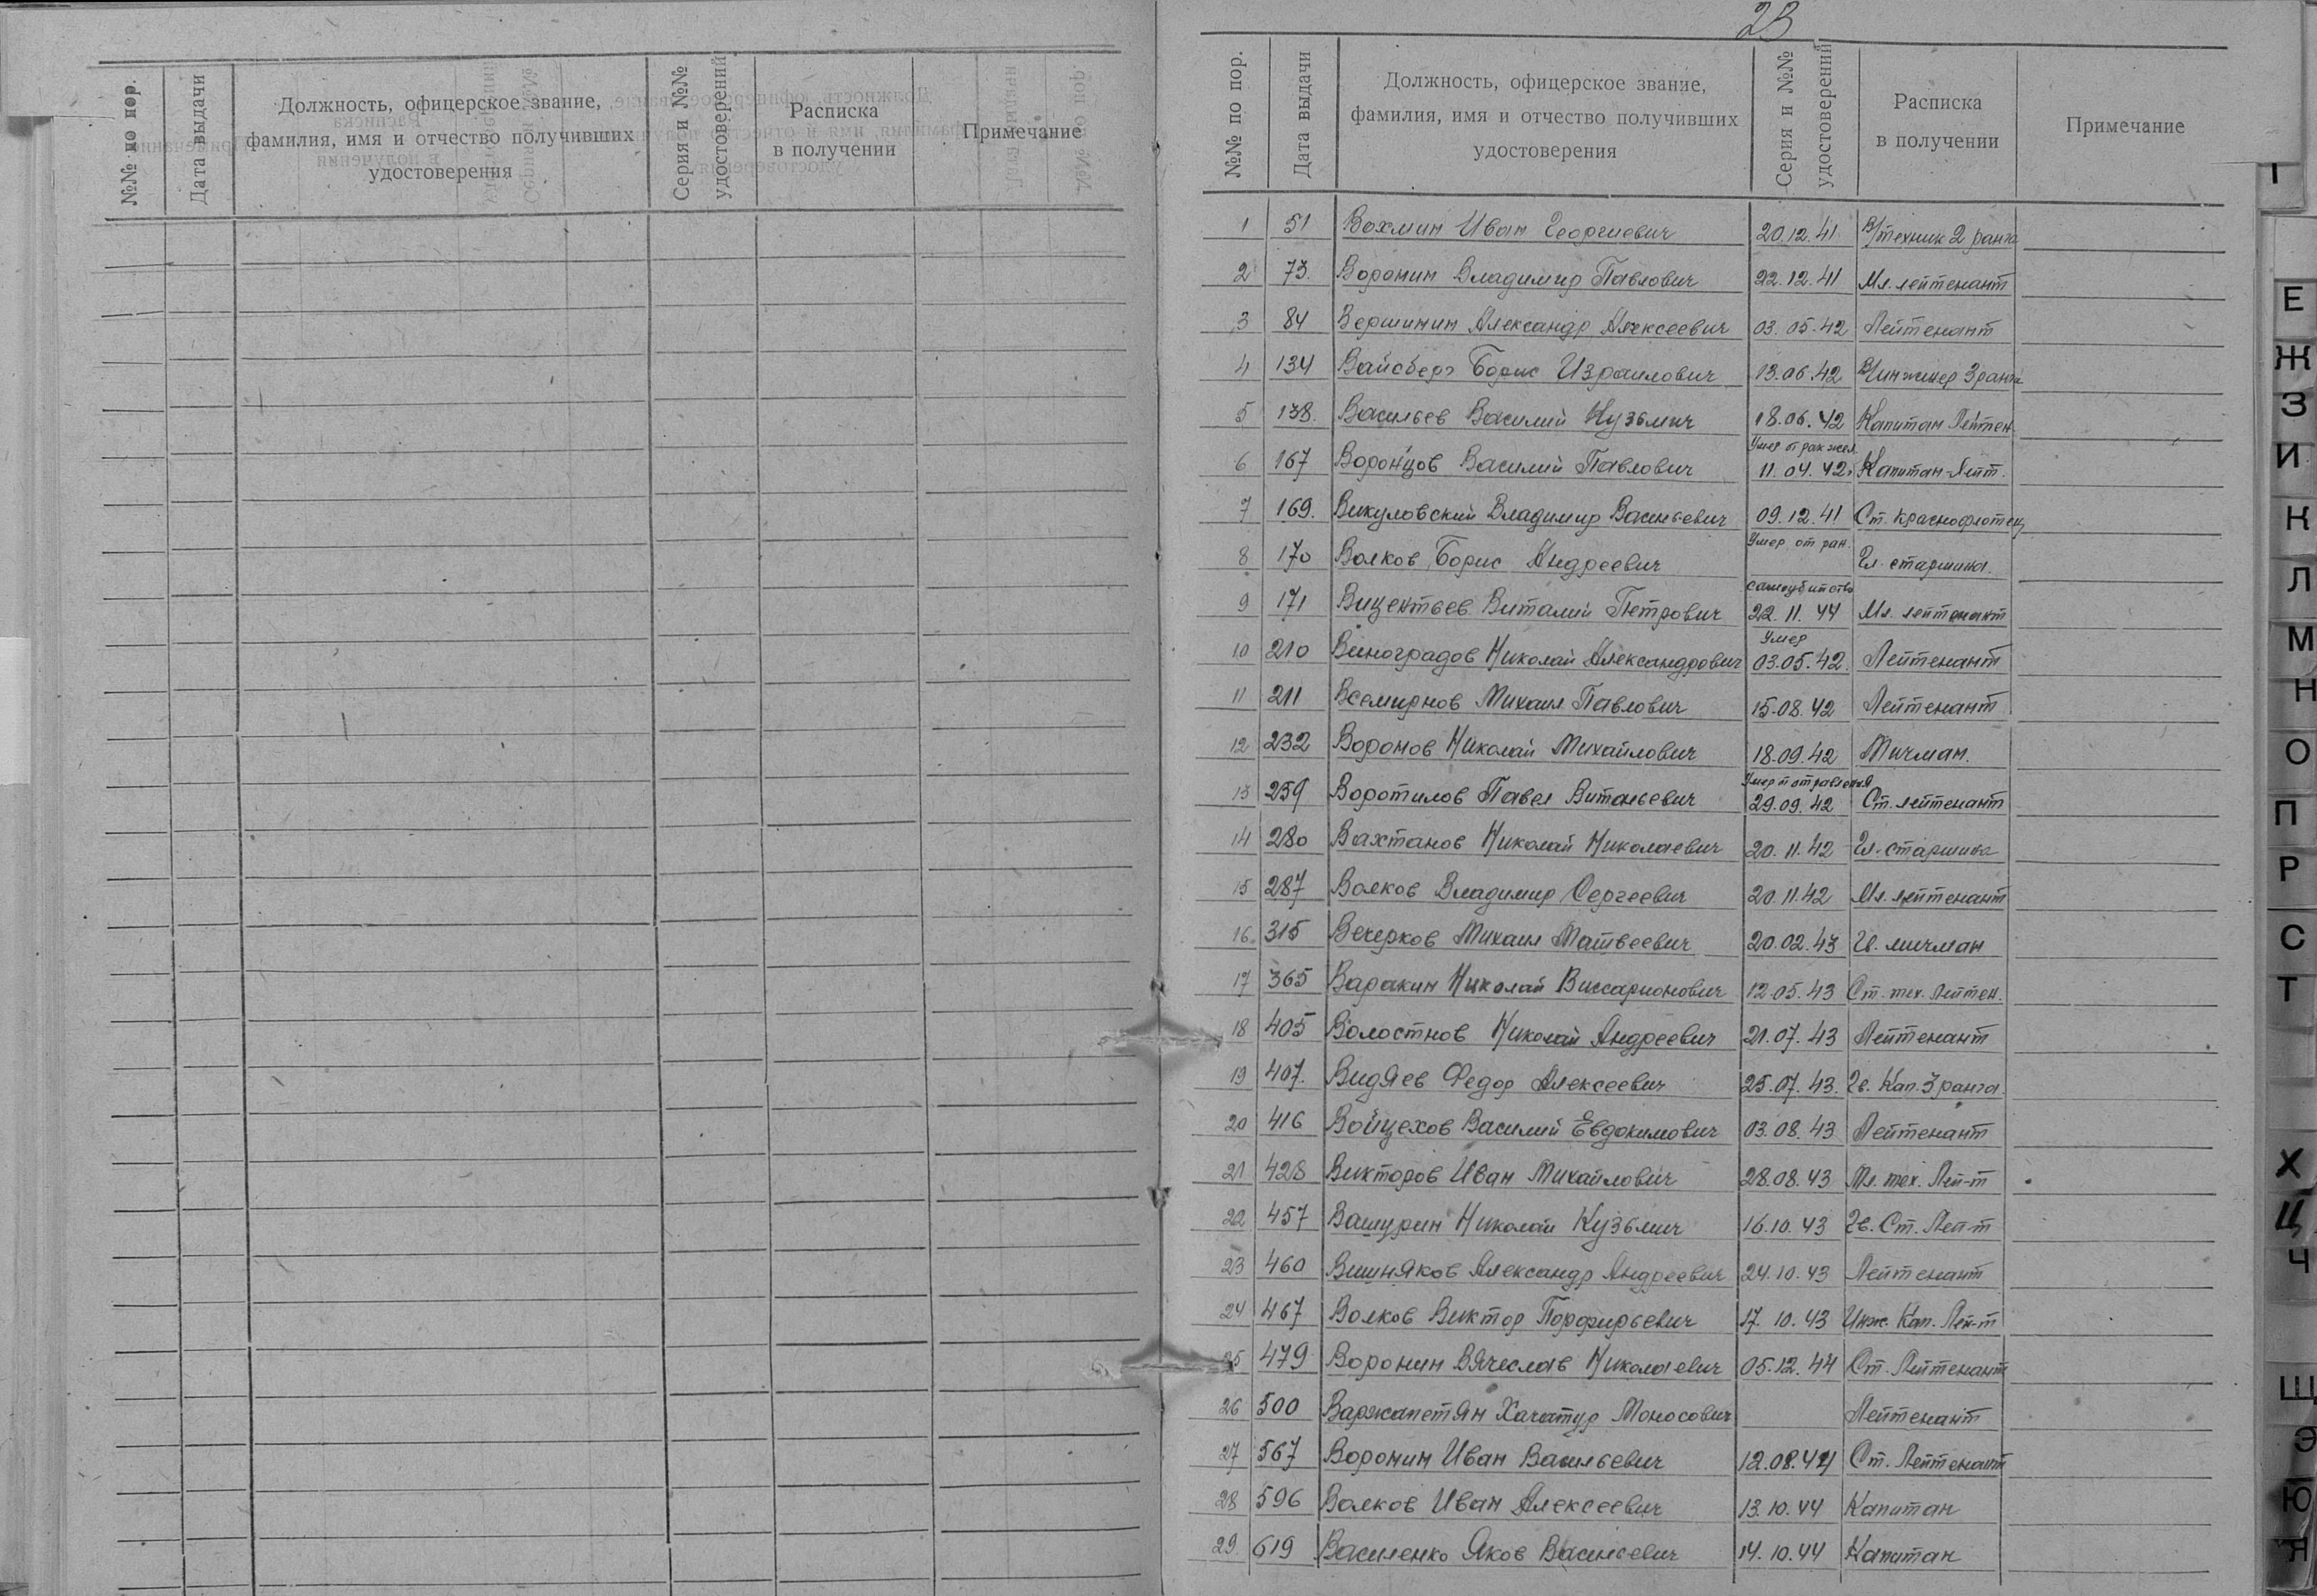 №№ по пор.
Дата выдачи
Должность, офицерское звание,
фамилия, имя и отчество получивших
удостоверения
Серия и №№
удостоверений
Расписка
в получении
Примечание
23
№№ по пор.
Дата выдачи
Должность, офицерское звание,
фамилия, имя и отчество получивших
удостоверения
Серия и №№
удостоверений
Расписка
в получении
Примечание
1 51 Вохмин Иван Георгиевич 20.12.41 В/техник 2 ранга
2 73. Воронин Владимир Павлович 22.12.41 Мл. лейтенант
3 84 Вершинин Александр Алексеевич 03.05.42 Лейтенант
4 134 Вайсберг Борис Израилович 13.06.42 В/инженер 3 ранга
5 138. Васильев Василий Кузьмич 18.06.42 Капитан Лейтен.
Умер
6 167 Воронцов Василий Павлович 11.04.42г Капитан-Лейт.
7 169. Викуловский Владимир Васильевич 09.12.41 Ст. краснофлотец
Умер от ран.
8 170 Волков Борис Андреевич Гл. старшина.
самоубийство
9 171 Вицентьев Виталий Петрович 22.11.44 Мл. лейтенант
Умер
10 210 Виноградов Николай Александрович 03.05.42. Лейтенант
11 211 Всемирнов Михаил Павлович 15.08.42 Лейтенант
12 232 Воронов Николай Михайлович 18.09.42 Мичман.
Умер от отравления
13 259 Воротилов Павел Витальевич 29.09.42 Ст. лейтенант
14 280 Вахтанов Николай Николаевич 20.11.42 Гл. старшина
15 287 Волков Владимир Сергеевич 20.11.42 Мл. лейтенант
16. 315 Вечерков Михаил Матвеевич 20.02.43 Гв. мичман
17 365 Варакин Николай Виссарионович 12.05.43 Ст. тех. Лейтен.
18 405 Волостнов Николай Андреевич 21.07.43 Лейтенант
19 407. Видяев Федор Алексеевич 25.07.43. Гв. Кап. 3 ранга
20 416 Войцехов Василий Евдокимович 03.08.43 Лейтенант
21 428 Викторов Иван Михайлович 28.08.43 Мл. тех. Лей-т
22 457 Вашурин Николай Кузьмич 16.10.43 Гв. Ст. Лей-т
23 460 Вишняков Александр Андреевич 24.10.43 Лейтенант
24 467 Волков Виктор Порфирьевич 17.10.43 Инж. Кап. Лей-т
25 479 Воронин Вячеслав Николаевич 05.12.44 Ст. Лейтенант
26 500 Варжапетян Хачатур Моносович Лейтенант
27 567 Воронин Иван Васильевич 12.08.44 Ст. Лейтенант
28 596 Волков Иван Алексеевич 13.10.44 Капитан
29 619 Василенко Яков Васильевич 14.10.44 Капитан
Е
Ж
З
И
К
Л
М
Н
О
П
Р
С
Т
Х
Ц
Ч
Щ
Э
Ю
Я